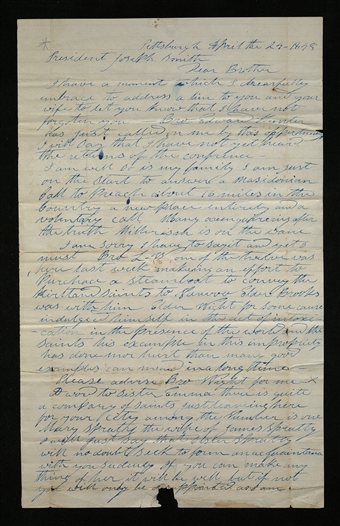 Pittsburgh April the 24 - 1843
President Joseph Smith
Dear Brother
I have a moment which I cheerfully
embrace to address a line to you and your
wife to let you know that I have not
forgotten you Bro Edward Hunter
has just called on me by this opportunity
I will say that I have not yet heard
the returns of the conference
I am well so is my family I am just
on the start to answer a Macedonian
Call to Preach about 16 miles in the
Country a new place entirely and a
voluntary call Many are enquiring after
the truth Millerism is on the wane
I am sorry I have to say it and yet I
must Bro L W one of the twelve was
here last week making an effort to
Purchase a steamboat to convey the
Kirtland Saints to Nauvoo Elder Brooks
was with him Elder Wight for some time
indulged himself in the act of intoxi
cation in the presence of the world and the
Saints his example in this impropriety
has done mor hurt than many good
examples can mend in a long time
Please advise Bro Wight for me
A word to Sister Emma there is quite
a company of Saints just leaving here
for your City among the number is one
Mary Spratly the wife of James Spratly
I will just say that Sister Spratly
will no doubt seek to form an acquaintance
with you suddenly if you can make any
thing of her it will be well but if not
you will only be disappointed as